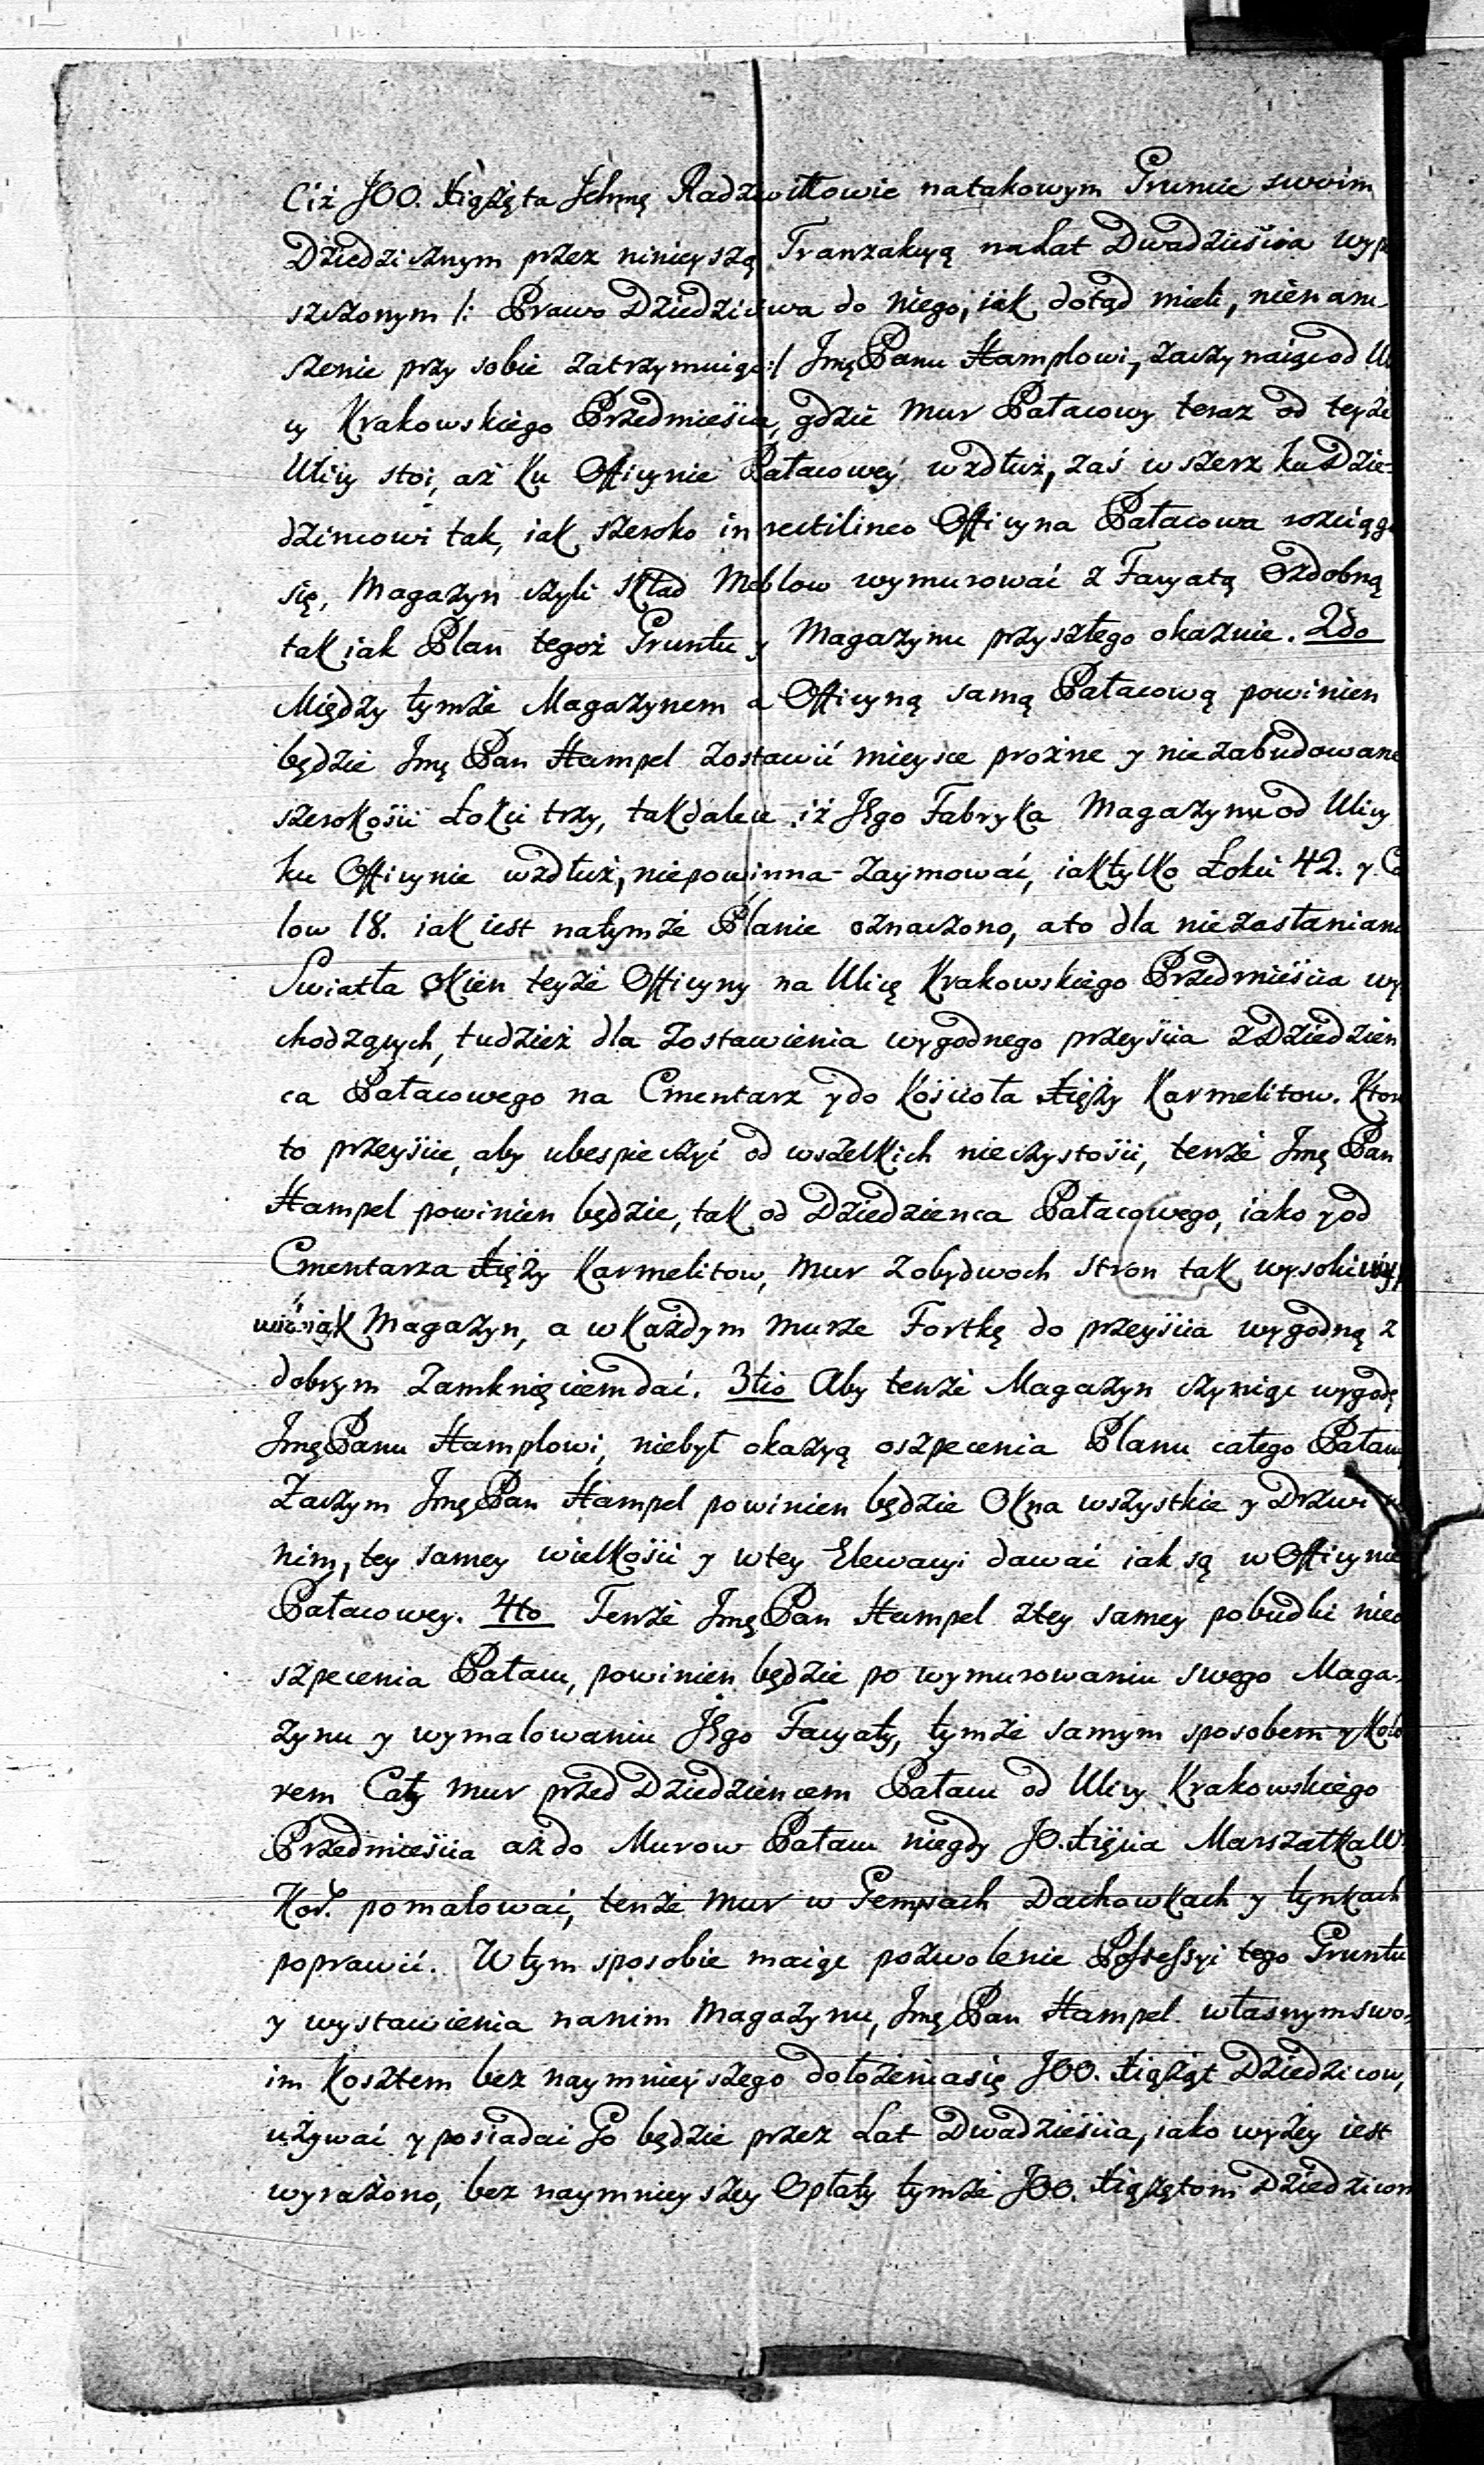 Ciż JOO. Xiążęta Jchmę Radziwiłłowie natakowym Gruncie swoim
Dziedzicznym przez ninieyszą Tranzakcyą na Lat Dwadzieścia wyp
szczonym /: Prawo Dziedzictwa do niego, iak dotąd mieli, nienaru
szenie przy sobie zatrzymuiąc :/ Jmę Panu Hamplowi, zaczynaiąc od Ul
cy Krakowskiego Przedmieścia, gdzie Mur Pałacowy teraz od teyże
Ulicy stoi, aż ku Officynie Pałacowey wzdłuż, zaś w szerz ku Dzie-
dzincowi tak, iak szeroko in rectilineo Officyna Pałacowa rozciąga
się, Magazyn czyli skład Meblow wymurować z Facyatą Ozdobną
tak iak Plan tegoż Gruntu y Magazynu przyszłego okazuie. 2do
Między tymże Magazynem a Officyną samą Pałacową powinien
będzie Jmę Pan Hampel zostawić mieysce prożne y niezabudowane
szerokości Łokci trzy, takdalece iż Jego Fabryka Magazynu od Ulicy
ku Officynie wzdłuż, niepowinna zaymować, iaktylko Łokci 42. y C
low 18. iak iest natymże Planie oznaczono, ato dla niezasłaniani
Swiatła Okien teyże Officyny na Ulicę Krakowskiego Przedmieścia wy
chodzących, tudzież dla zostawienia wygodnego przeyścia z Dziedzien
ca Pałacowego na Cmentarz y do Kościoła Xięży Karmelitow. Ktor
to przeyście, aby ubespieczyć od wszelkich nieczystości, tenże Jmę Pan
Hampel powinien będzie, tak od Dziedzienca Pałacowego, iako y od
Cmentarza Xięży Karmelitow, Mur z obydwoch stron tak wysoki wyp
wić iak Magazyn, a w każdym Murze Fortkę do przeyścia wygodną z
dobrym zamknięciem dać. 3tio Aby tenże Magazyn czyniąc wygodę
Jmę Panu Hamplowi, niebył okazyą oszpecenia Planu całego Pałacu
Zaczym Jmę Pan Hampel powinien będzie Okna wszystkie y Drzwi w
nim, tey samey wielkości y w tey Elewacyi dawać iak są w Officynie
Pałacowey. 4to Tenże Jmę Pan Hampel z tey samey pobudki nieo
szpecenia Pałacu, powinien będzie po wymurowaniu swego Maga-
zynu y wymalowaniu Jego Facyaty, tymże samym sposobem y Kolo
rem Cały Mur przed Dziedziencem Pałacu od Ulicy Krakowskiego
Przedmieścia aż do Murow Pałacu niegdy JO. Xięcia Marszałka W.
Kor. pomalować, tenże Mur w Gemsach Dachowkach y tynkach
poprawić. W tym sposobie maiąc pozwolenie Possessyi tego Gruntu
y wystawienia nanim Magazynu, Jmę Pan Hampel własnym swo-
im Kosztem bez naymnieyszego dołożenia się JOO. Xiążąt Dziedzicow,
używać y posiadać Go będzie przez Lat Dwadzieścia, iako wyżey iest
wyrażono, bez naymnieyszey Opłaty tymże JOO. Xiążętom Dziedzicom